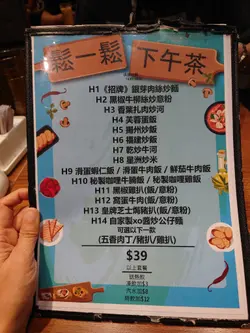 鬆一鬆 下午茶
H1《招牌》銀芽肉絲炒麵
H2 黑椒牛柳絲炒意粉
H3 香葉扎肉炒河
H4 芙蓉蛋飯
H5 揚州炒飯
H6 福建炒飯
H7 乾炒牛河
H8 星洲炒米
H9 滑蛋蝦仁飯 / 滑蛋牛肉飯 / 鮮茄牛肉飯
H10 秘製咖哩牛腩飯 / 秘製咖哩雞飯
H11 黑椒雞扒(飯/意粉)
H12 窩蛋牛肉(飯/意粉)
H13 皇牌芝士焗豬扒(飯/意粉)
H14 自家製xo醬炒公仔麵
可選以下一款
(五香肉丁/豬扒/雞扒)
$39
以上套餐
送熱飲
凍飲加$3
汽水加$8
特飲加$12